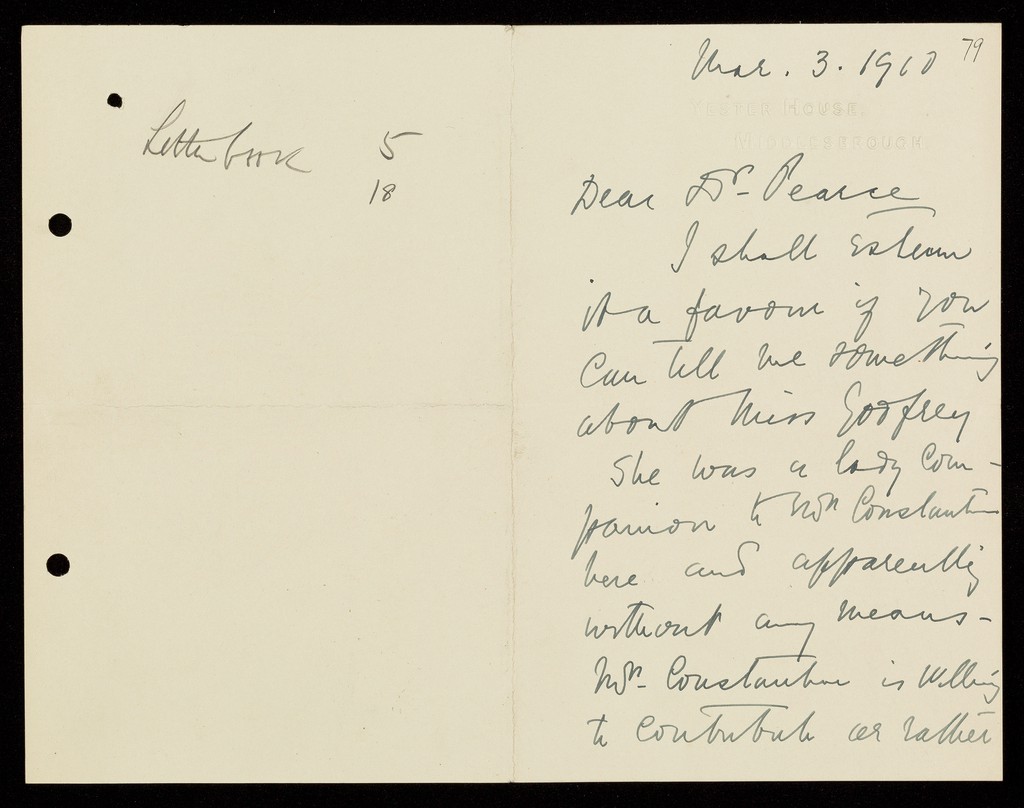 Letter book 5
18
79
Mar. 3. 1910
YESTER HOUSE,
MIDDLESBROUGH.
Dear Dr. Pearce
I shall esteem
it a favour if you
can tell me something
about Miss Godfrey
She was a lady Com-
panion to Mr Constantine
here and apparently
without any means -
Mr. Constantine is willing
to contribute or rather